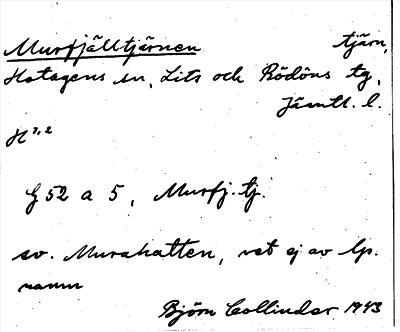 Murfjälltjärnen tjärn,
Hotagens sn, Lits och Rödöns tg,
Jämtl. l.
H 7,2
G 52 a 5, Murfj. tj.
sv. Murahatten, vet ej av lp.
namn
Björn Collinder 1943